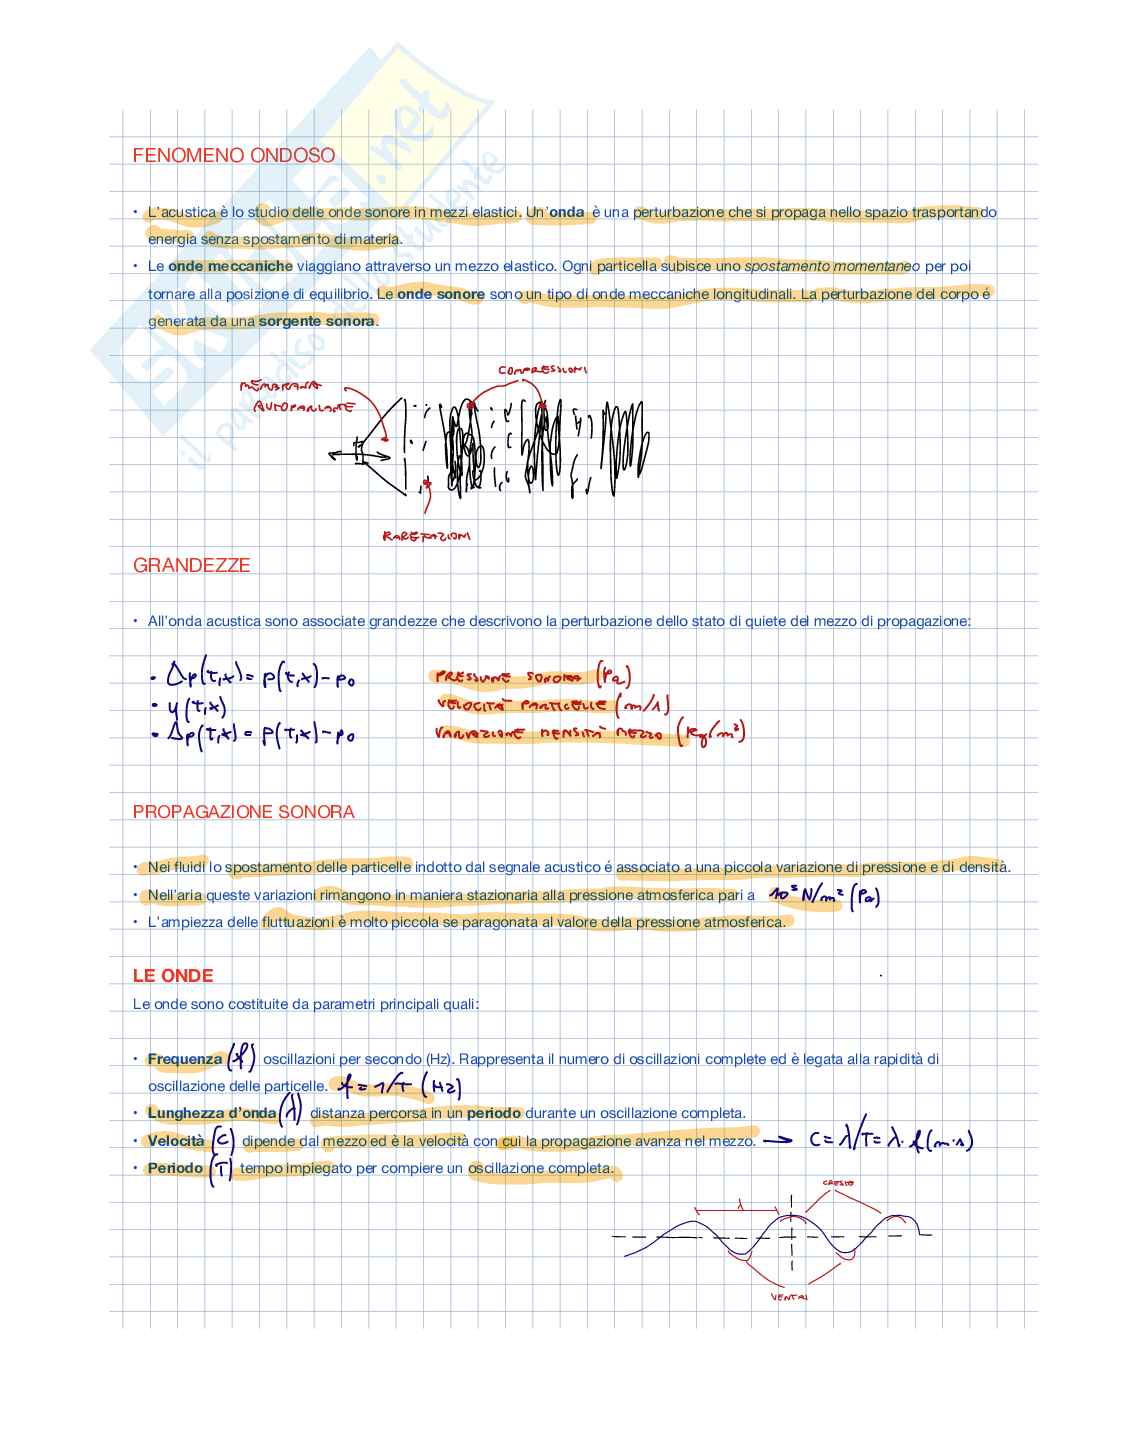 FENOMENO ONDOSO
• L'acustica è lo studio delle onde sonore in mezzi elastici. Un'onda è una perturbazione che si propaga nello spazio trasportando
energia senza spostamento di materia.
• Le onde meccaniche viaggiano attraverso un mezzo elastico. Ogni particella subisce uno spostamento momentaneo per poi
tornare alla posizione di equilibrio. Le onde sonore sono un tipo di onde meccaniche longitudinali. La perturbazione del corpo é
generata da una sorgente sonora.
COMPRESSIONI
MEMBRANA
AUTOPARLANTE
RAREFAZIONI
GRANDEZZE
• All'onda acustica sono associate grandezze che descrivono la perturbazione dello stato di quiete del mezzo di propagazione:
• Δp(t,x) = p(t,x) - p₀ PRESSIONE SONORA (Pa)
• u(t,x) VELOCITÀ PARTICELLE (m/s)
• Δρ(t,x) = ρ(t,x) - ρ₀ VARIAZIONE DENSITÀ MEZZO (Kg/m³)
PROPAGAZIONE SONORA
• Nei fluidi lo spostamento delle particelle indotto dal segnale acustico é associato a una piccola variazione di pressione e di densità.
• Nell'aria queste variazioni rimangono in maniera stazionaria alla pressione atmosferica pari a 10⁵ N/m² (Pa)
• L'ampiezza delle fluttuazioni è molto piccola se paragonata al valore della pressione atmosferica.
LE ONDE
Le onde sono costituite da parametri principali quali:
• Frequenza (f) oscillazioni per secondo (Hz). Rappresenta il numero di oscillazioni complete ed è legata alla rapidità di
oscillazione delle particelle. f = 1/T (Hz)
• Lunghezza d'onda (λ) distanza percorsa in un periodo durante un oscillazione completa.
• Velocità (c) dipende dal mezzo ed è la velocità con cui la propagazione avanza nel mezzo. → C = λ/T = λ · f (m·s)
• Periodo (T) tempo impiegato per compiere un oscillazione completa.
CRESTO
λ
VENTRI
SKUOLA.net
il paradiso dello studente